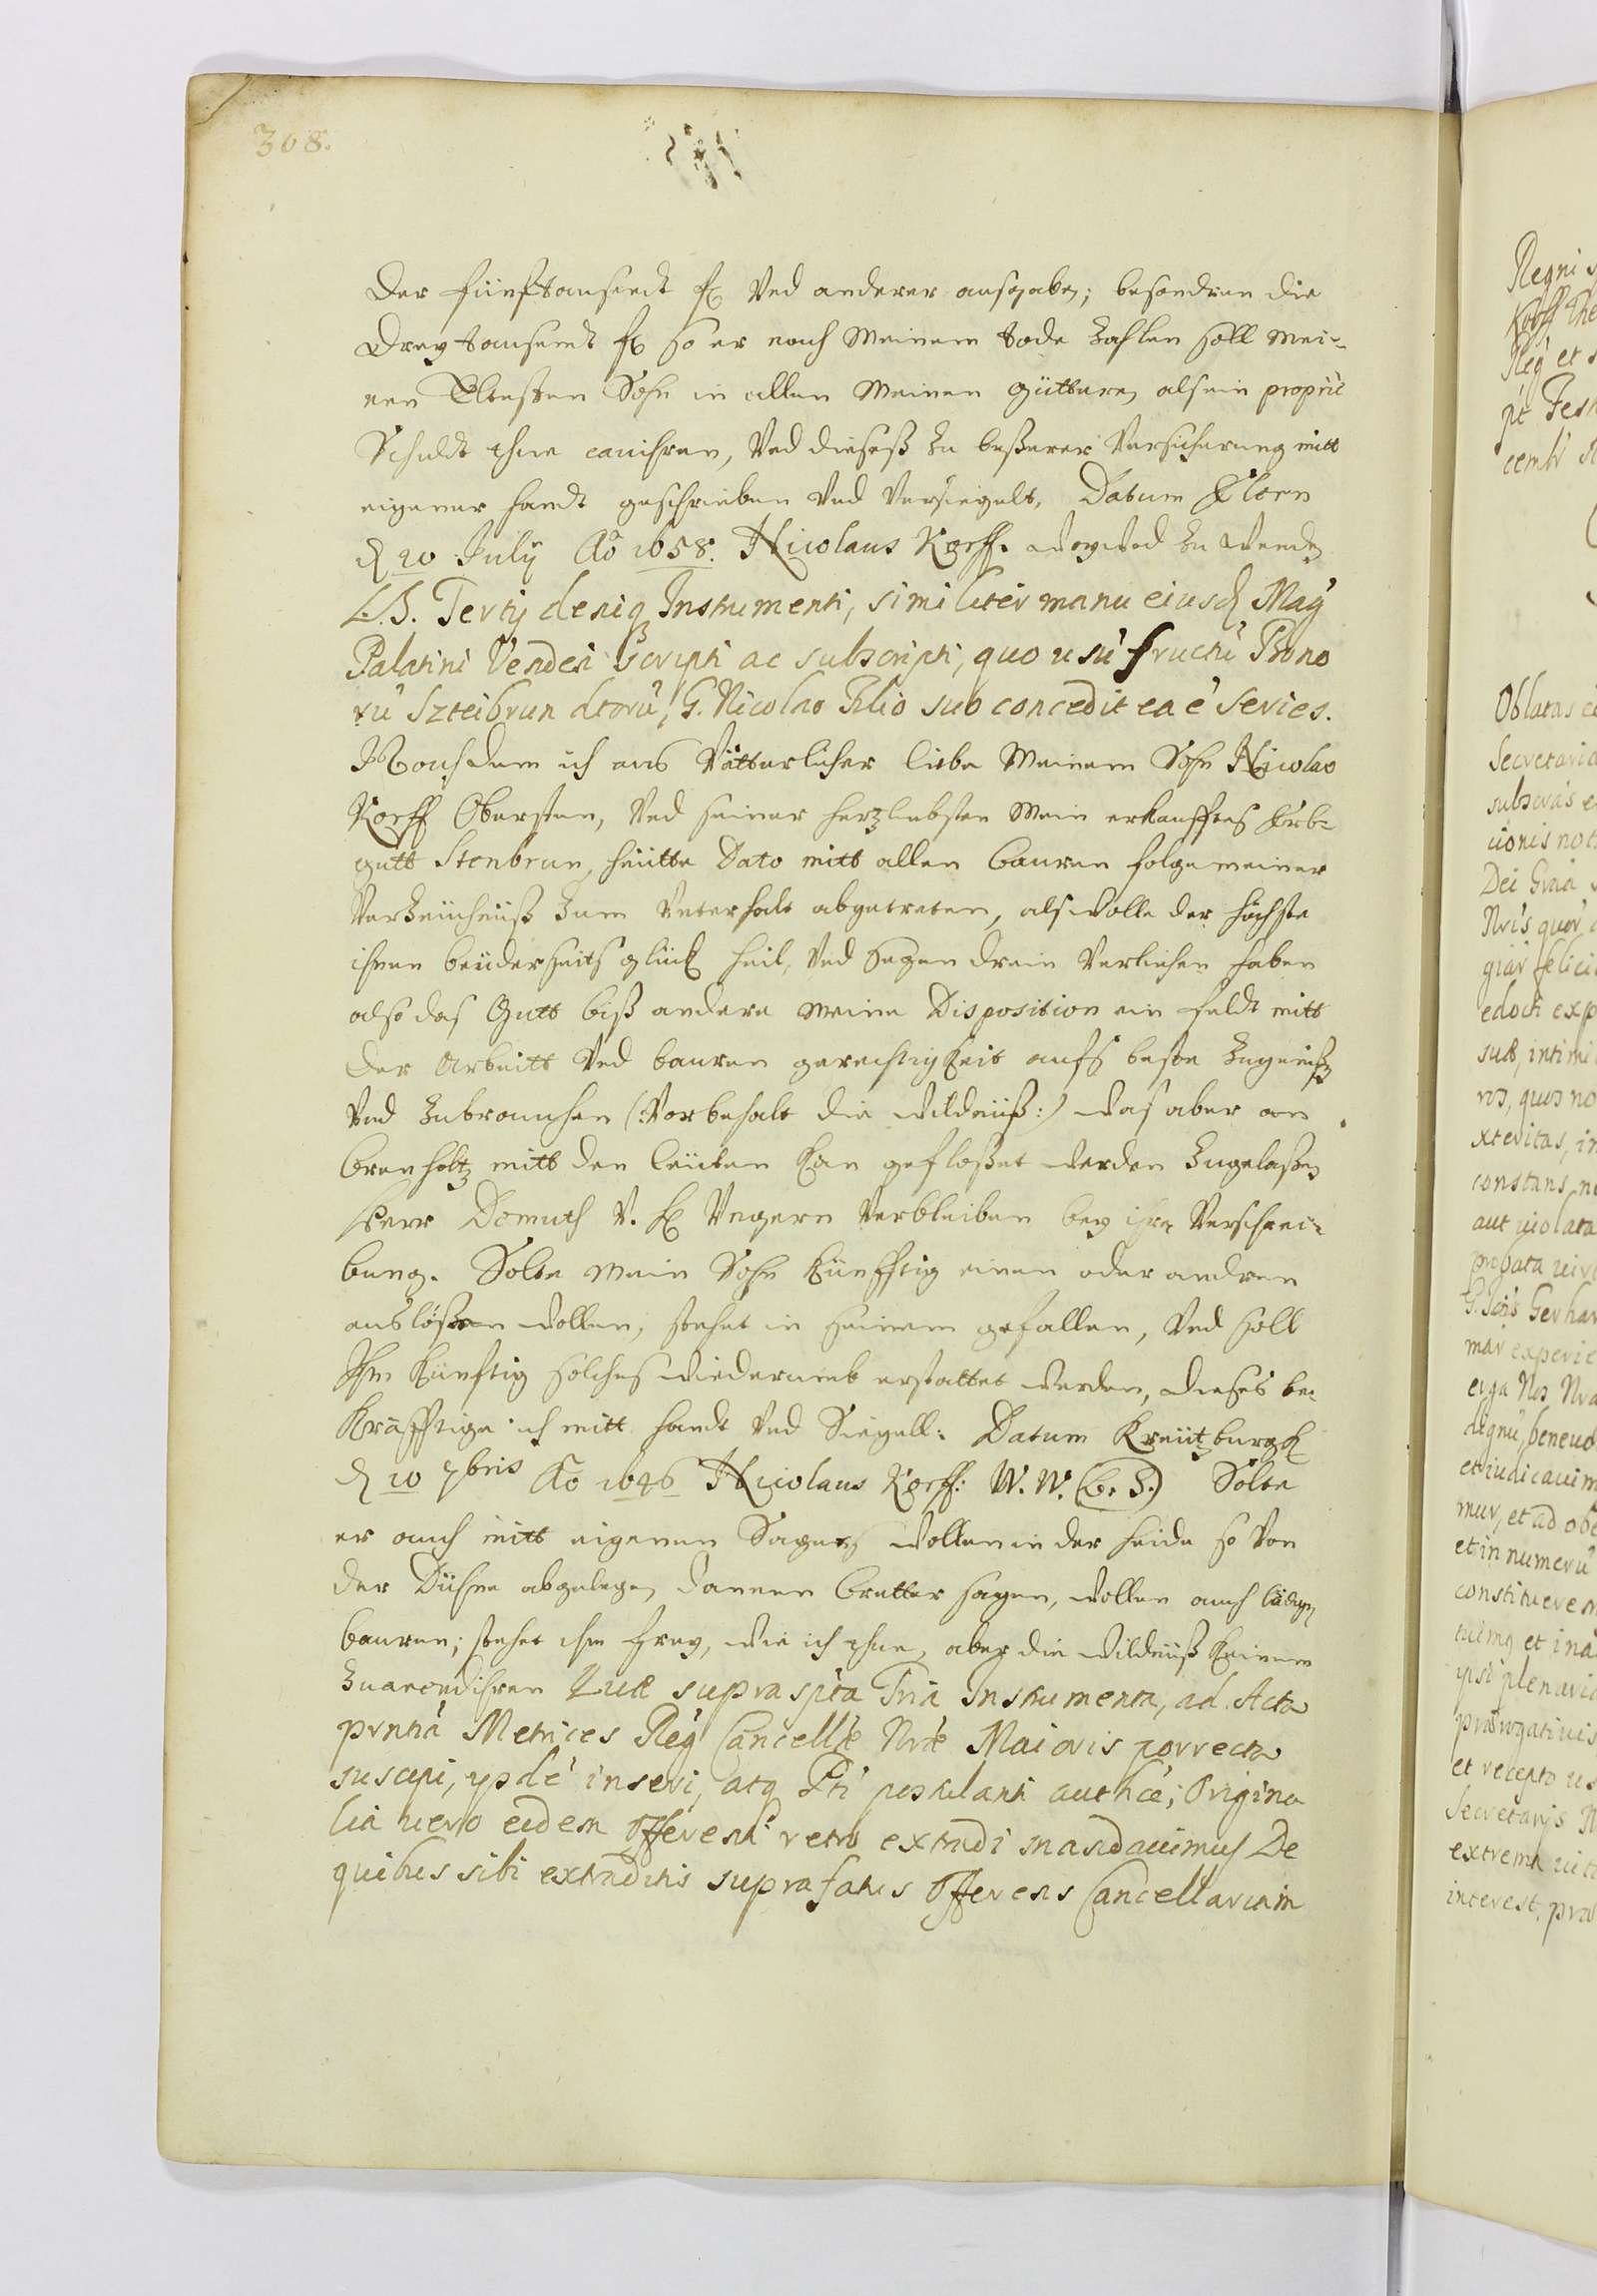 308.
Der fünftausendt fl Vnd anderer ausgaben; besondren die
Drey tausendt fl so er nach Meinem tode Zahlen soll mei-
nen Eltesten Sohn in allen Meinen güttern alß ein propriè
Schuldt thue cavihren, Vnd dieseß Zu beßerer Versicherung mitt
eigener handt geschrieben Vnd Versiegelt, Datum
d 20 Julÿ Aõ 1658. Nicolaus Korff. woywod Zu wenden
L.S. Tertij deniq Instrumenti, similiter manu eiusd Mag
Palatini Vendeñ scripti ac subscripti, quo usũ fructũ Bono
rũ Szteibrun dtorũ, G. Nicolao Filio suo concedit ea ẽ series.
Nachdem ich aus Vätterlicher liebe Meinem Sohn Nicolao
Korff Obersten, Vnd seiner hertzliebsten Mein erkaufftes Erb-
gutt Stenbrun, heütte Dato mitt allen bauren folge meiner
Verzeüchnüß Zum Vnterhalt abgetreten, alß wolle der höchste
ihnen beüderseits glück heil, Vnd Segen drein Verliehen haben
also das Gutt biß andere meine Disposition ein feldt mitt
der Arbeitt Vnd bauren gerechtigkeit aufs beste Zugenißen
Vnd Zubrauchen (:Vorbehalt die wildnüß:) was aber an
brenholtz mitt den leüten kan geflößet werden Zugelaßen
Herr Domuth V. H Vngern Verbleiben bey ihrer Verschrei-
bung. Solte mein Sohn künfftig einen oder andren
auslößen wollen, stehet in seinem gefallen, Vnd soll
Ihm künftig solches wiederumb erstattet werden, dieses be-
kräfftige ich mitt handt Vnd Siegell: Datum Kreützburgk
d 20 7bris Ao 1646 Nicolaus Korff: W. W. (L. S.) Solte
er auch mitt eigenen Sagen wollen in der heide so Von
der Dühne abgelegen dannen bretter sagen, wollen auch
bauren; stehet ihm frey, wie ich thue, aber die wildnüß keinem
Zuarendihren Quæ supra spta Tria Instrumenta, ad Acta
prntia Metrices Reg Cancellæ Nræ Maioris porrecta
suscepi, ypsdẽ inseri, atq Pti postulanti autħce; Origina
lia vero eidem Offerenti retro extradi mandavimus De
quibus sibi extraditis supra fatus Offerens Cancellariam
Regni
Korff
Reg et s
cemb
Oblatas
Secretaria
subscr
cionis not
Dei Gratia
Nris quor
giar felici
edoch exp
suæ, intimi
ros, quos no
xteritas, in
constans, n
aut violata
probata
G. Jois Gerhar
mar experie
erga Nos Nra
Regnũ, benevo
et iudicavim
mur, et ad ob
et in numerũ
constituerem
tuimq et ina
ypsi plenaria
prærogativis
et recepto
Secretarijs N
extrema
interest, præ